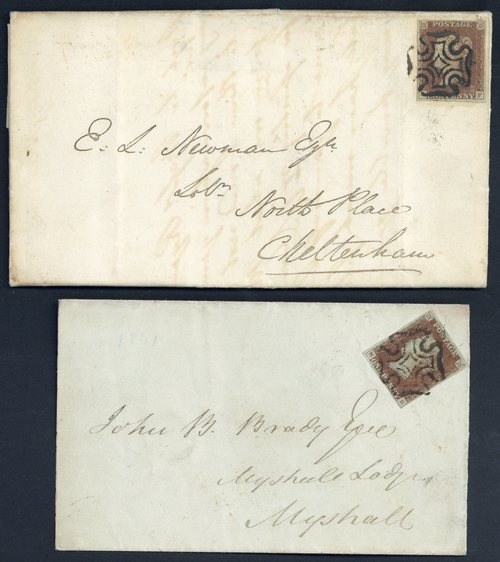 POSTAGE
E. L. Newman Esqr
Solr
North Place
Cheltenham
POSTAGE
1841
John B. Brady Esqre
Myshall Lodge
Myshall